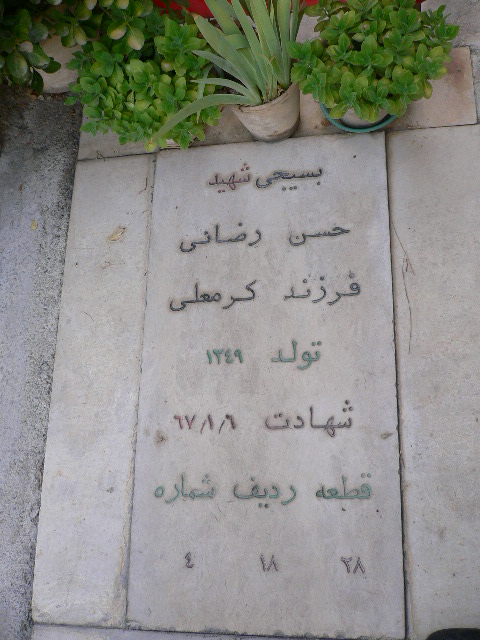 بسیجی شهید
حسن رضائی
فرزند کرمعلی
تولد ۱۳۴۹
شهادت ۶۷/۱/۶
قطعه ردیف شماره
۲۸ ۱۸ ۴